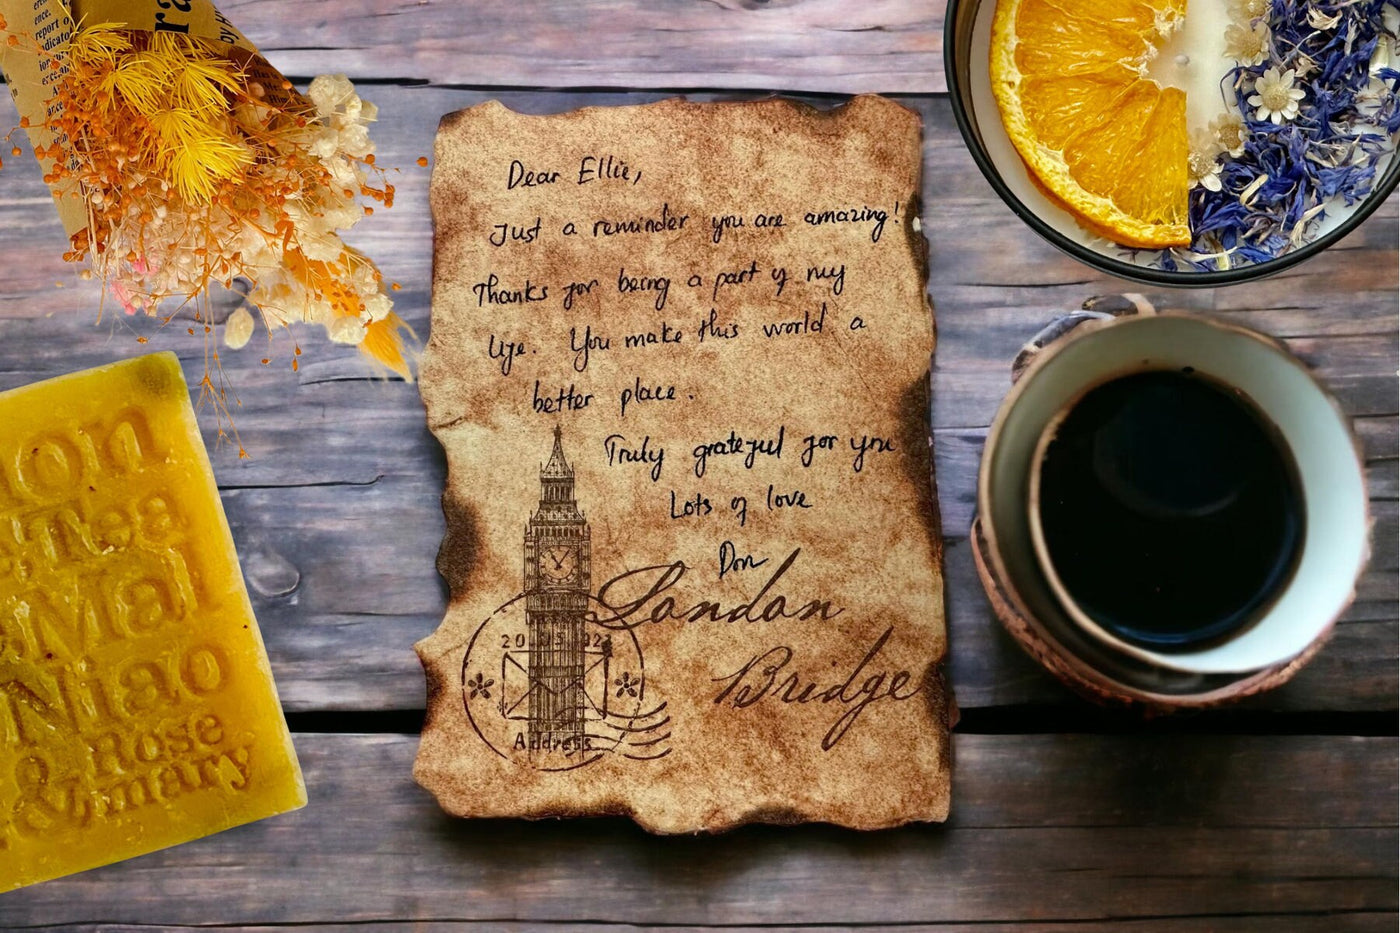 Dear Ellie,
Just a reminder you are amazing!
Thanks for being a part of my
life. You make this world a
better place.
Truly grateful for you
Lots of love
Don
London
Bridge
Address
on
Tea
Mal
Niao
Rose
& mary
ra
by
ence.
report o